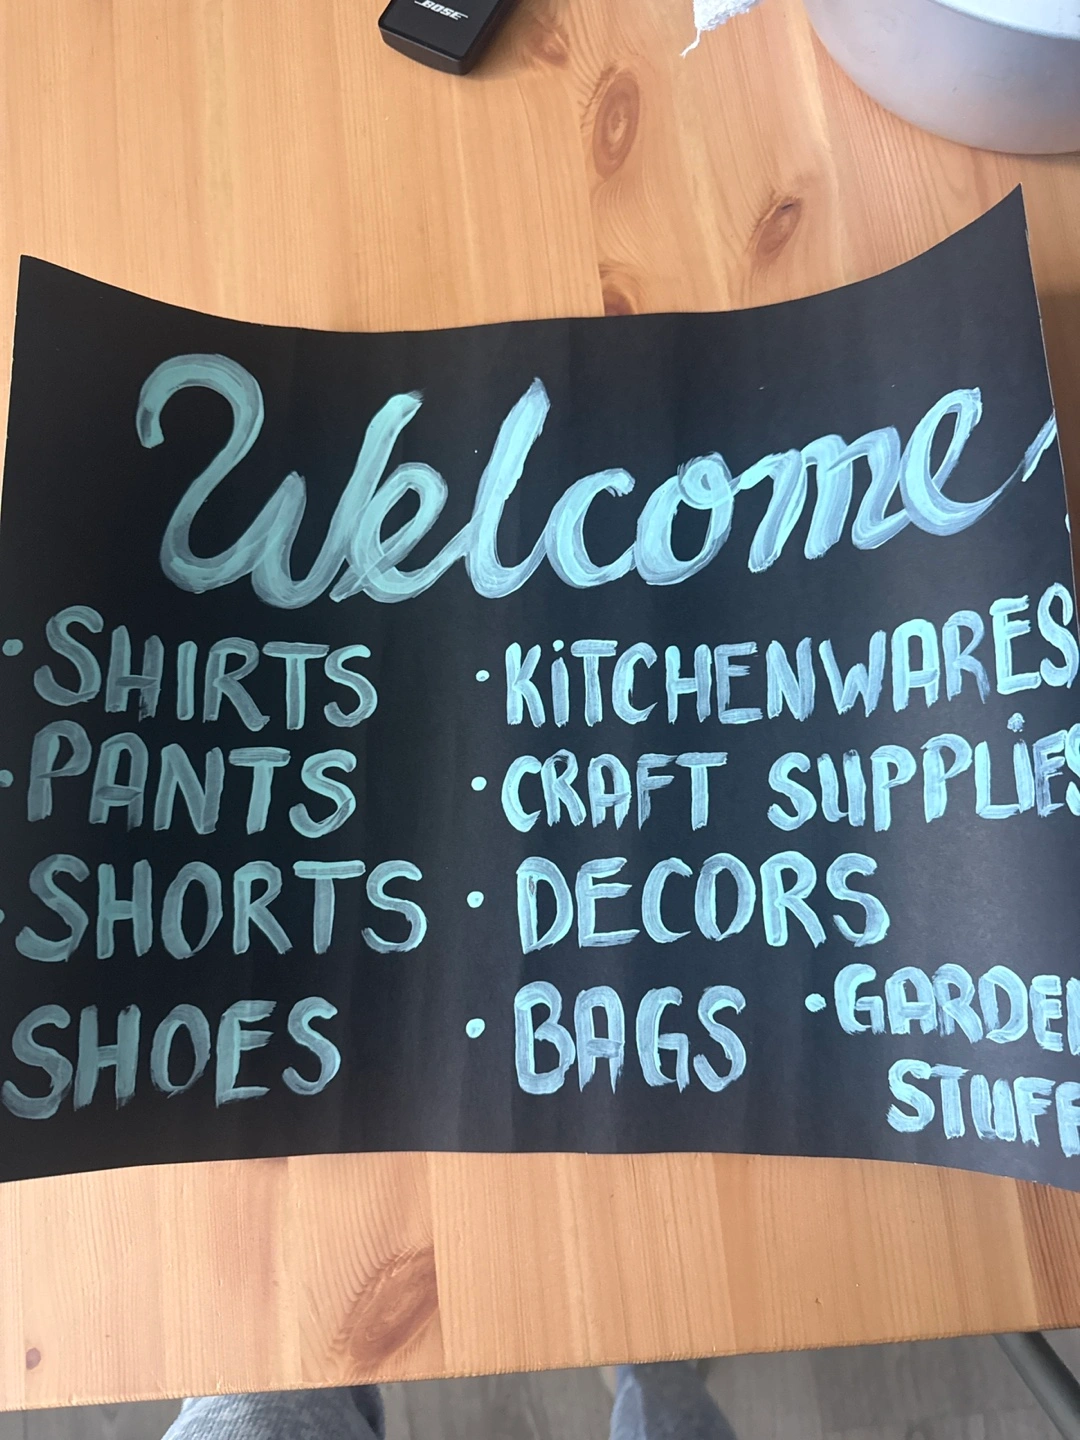 BOSE
Welcome
• SHIRTS
• PANTS
• SHORTS
SHOES
• KiTCHENWARES
• CRAFT SUPPLiES
• DECORS
• BAGS
• GARDEN
STUFF